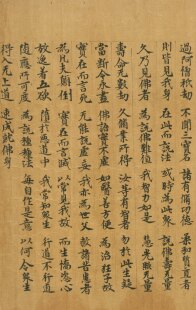 過阿僧祇劫 不聞三寶名 諸有修功德 柔和質直者
則皆見我身 在此而說法 或時為此眾 說佛壽無量
久乃見佛者 為說佛難值 我智力如是 慧光照無量
壽命无數劫 久修業所得 汝等有智者 勿於此生疑
當斷令永盡 佛語實不虛 如醫善方便 為治狂子故
實在而言死 无能說虛妄 我亦為世父 救諸苦患者
為凡夫顛倒 實在而言滅 以常見我故 而生憍恣心
放逸著五欲 墮於惡道中 我常知眾生 行道不行道
隨應所可度 為說種種法 每自作是意 以何令眾生
得入无上道 速成就佛身